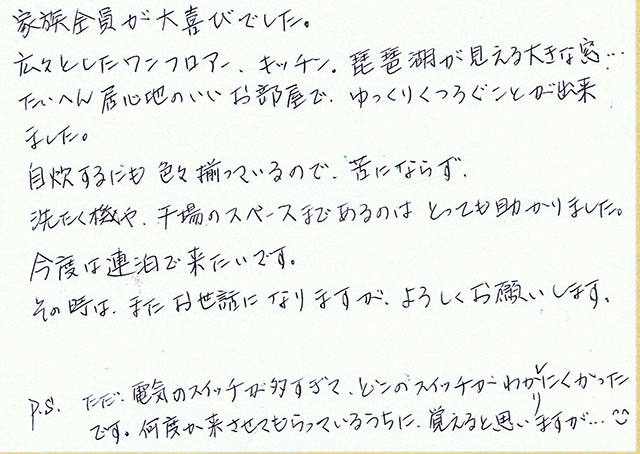 家族全員が大喜びでした。
広々としたワンフロアー、キッチン。琵琶湖が見える大きな窓…
たいへん居心地のいいお部屋で、ゆっくりくつろぐことが出来
ました。
自炊するにも色々揃っているので、苦にならず、
洗たく機や、干場のスペースまであるのはとっても助かりました。
今度は連泊で来たいです。
その時は、またお世話になりますが、よろしくお願いします。
P.S. ただ、電気のスイッチが多すぎて、どこのスイッチかわかりにくかった
です。何度か来させてもらっているうちに、覚えると思いますが…